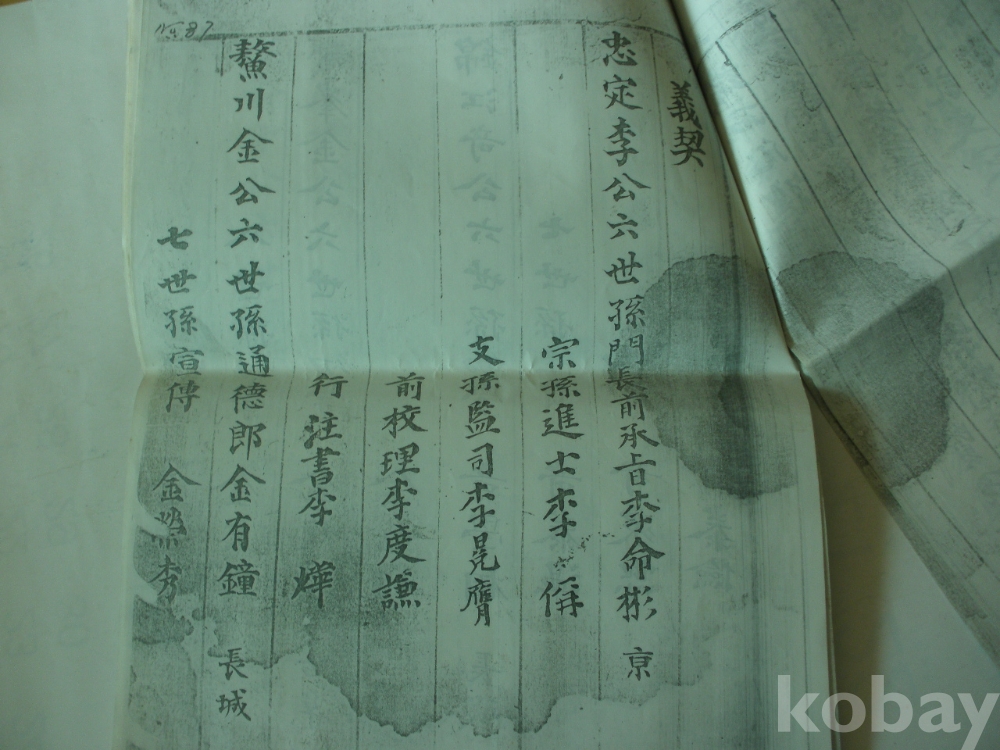 義契
忠定李公六世孫門長前承旨李命彬 京
宗孫進士李 偁
支孫監司李晃膺
前校理李度謙
行注書李 燁
鰲川金公六世孫通德郎金有鐘 長城
七世孫宣傳 金 秀
kobay